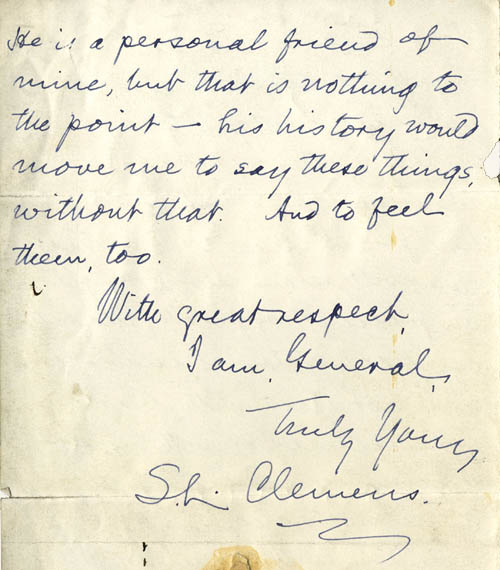 He is a personal friend of
mine, but that is nothing to
the point — his history would
move me to say these things,
without that. And to feel
them, too.
With great respect,
I am, General,
Truly Yours,
S.L. Clemens.